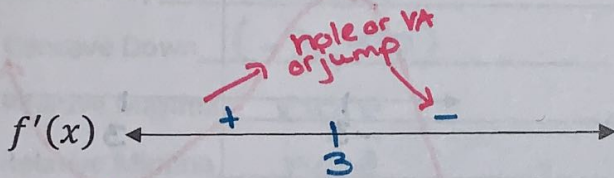 hole or VA
or jump
+ −
f'(x)
3